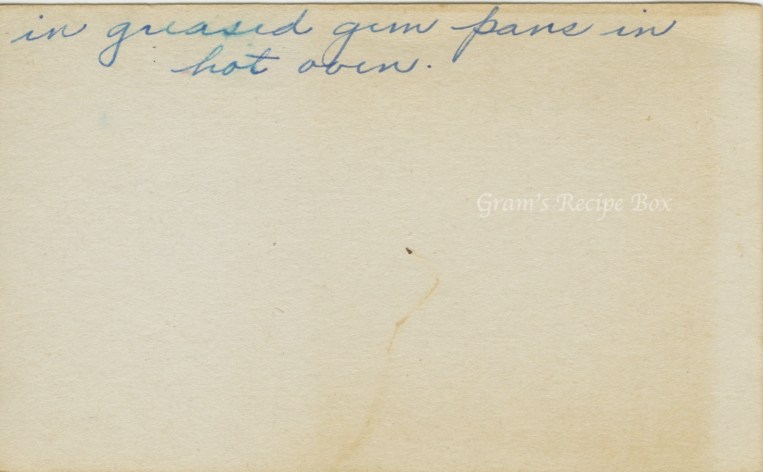 in greased gem pans in
hot oven.
Gram's Recipe Box